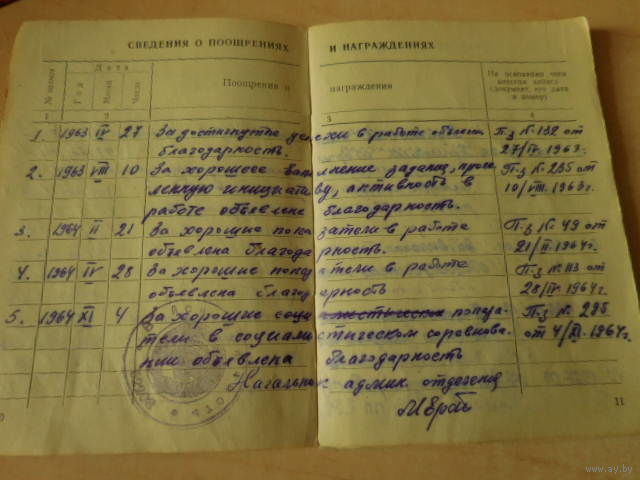 СВЕДЕНИЯ О ПООЩРЕНИЯХ И НАГРАЖДЕНИЯХ
№ записи
Дата
Год
Месяц
Число
Поощрения и награждения
На основании чего внесена запись (документ, его дата и номер)
1 2 3 4
1. 1963 IV 27 За достигнутые успехи в работе объявлена П-з № 132 от
благодарность. 27/IV 1963.
2. 1963 VIII 10 За хорошее выполнение заданий, прояв- П-з № 235 от
ленную инициативу, активность в 10/VIII. 1963г.
работе объявлена благодарность.
3. 1964 II 21 За хорошие показатели в работе П-з № 49 от
объявлена благодарность. 21/II. 1964г.
4. 1964 IV 28 За хорошие показатели в работе П-з № 113 от
объявлена благодарность 28/IV 1964г.
5. 1964 XI 4 За хорошие показа- П-з № 295
тели в социалистическом соревнова- от 4/XI. 1964г.
нии объявлена благодарность
Начальник админ. отделения
11
www.ay.by